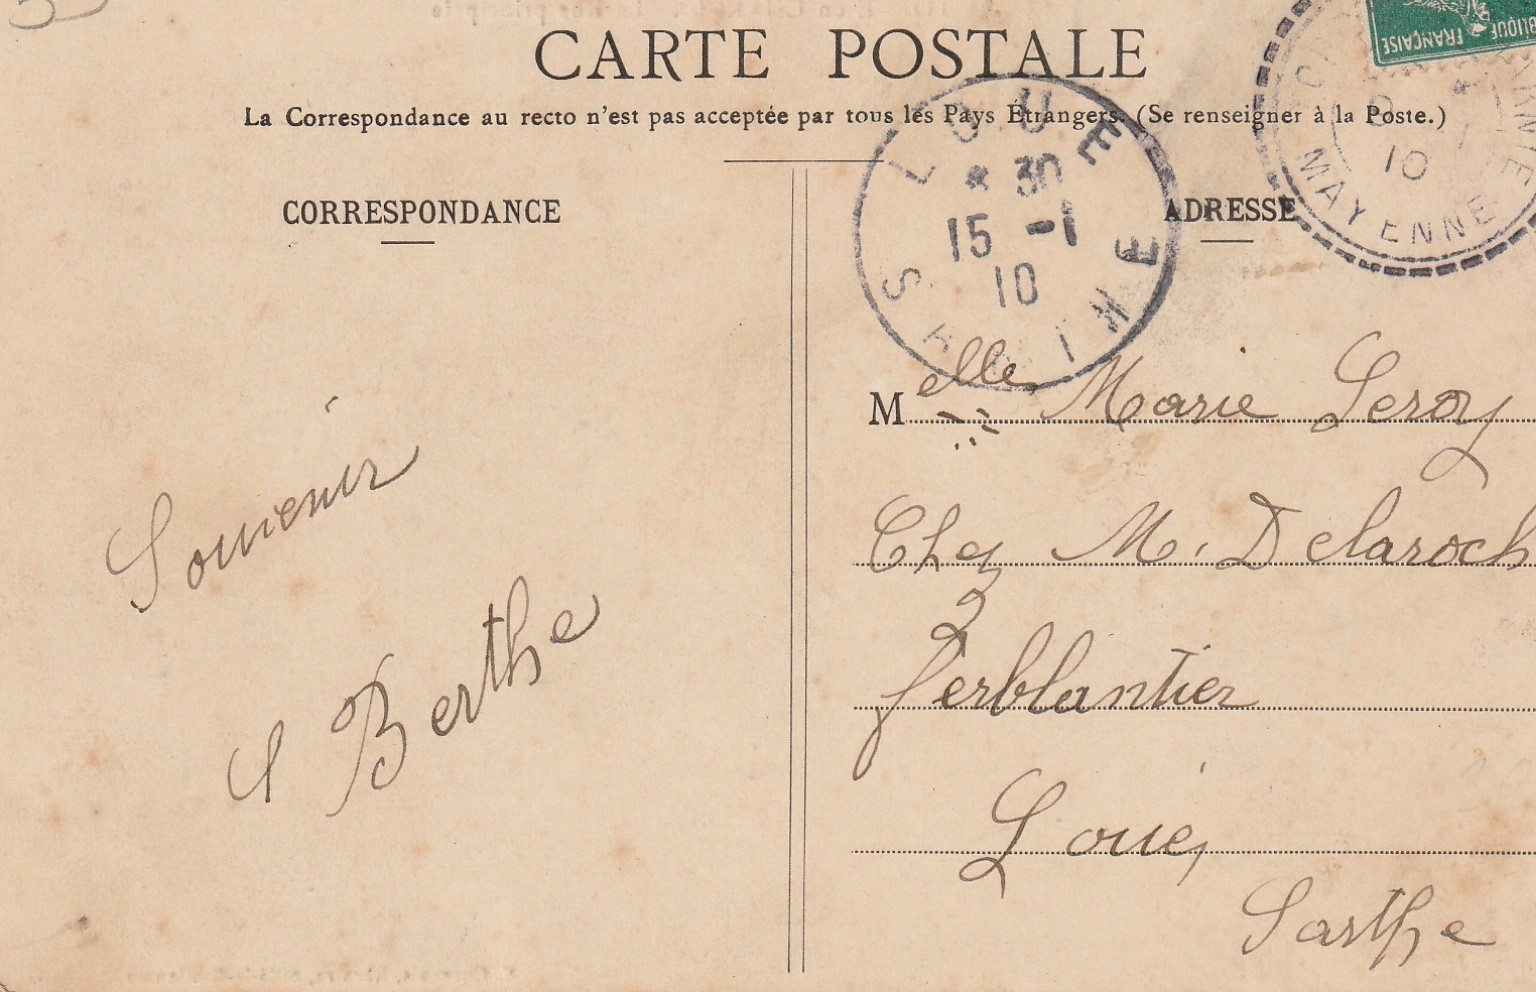 CARTE POSTALE
La Correspondance au recto n'est pas acceptée par tous les Pays Étrangers. (Se renseigner à la Poste.)
CORRESPONDANCE
ADRESSE
FRANÇAISE
LOUE
* 30
15 -1
10
SARTHE
10
MAYENNE
Melle Marie Leroy
Chez M. Delaroch
ferblantier
Loué,
Sarthe
Souvenir
Berthe